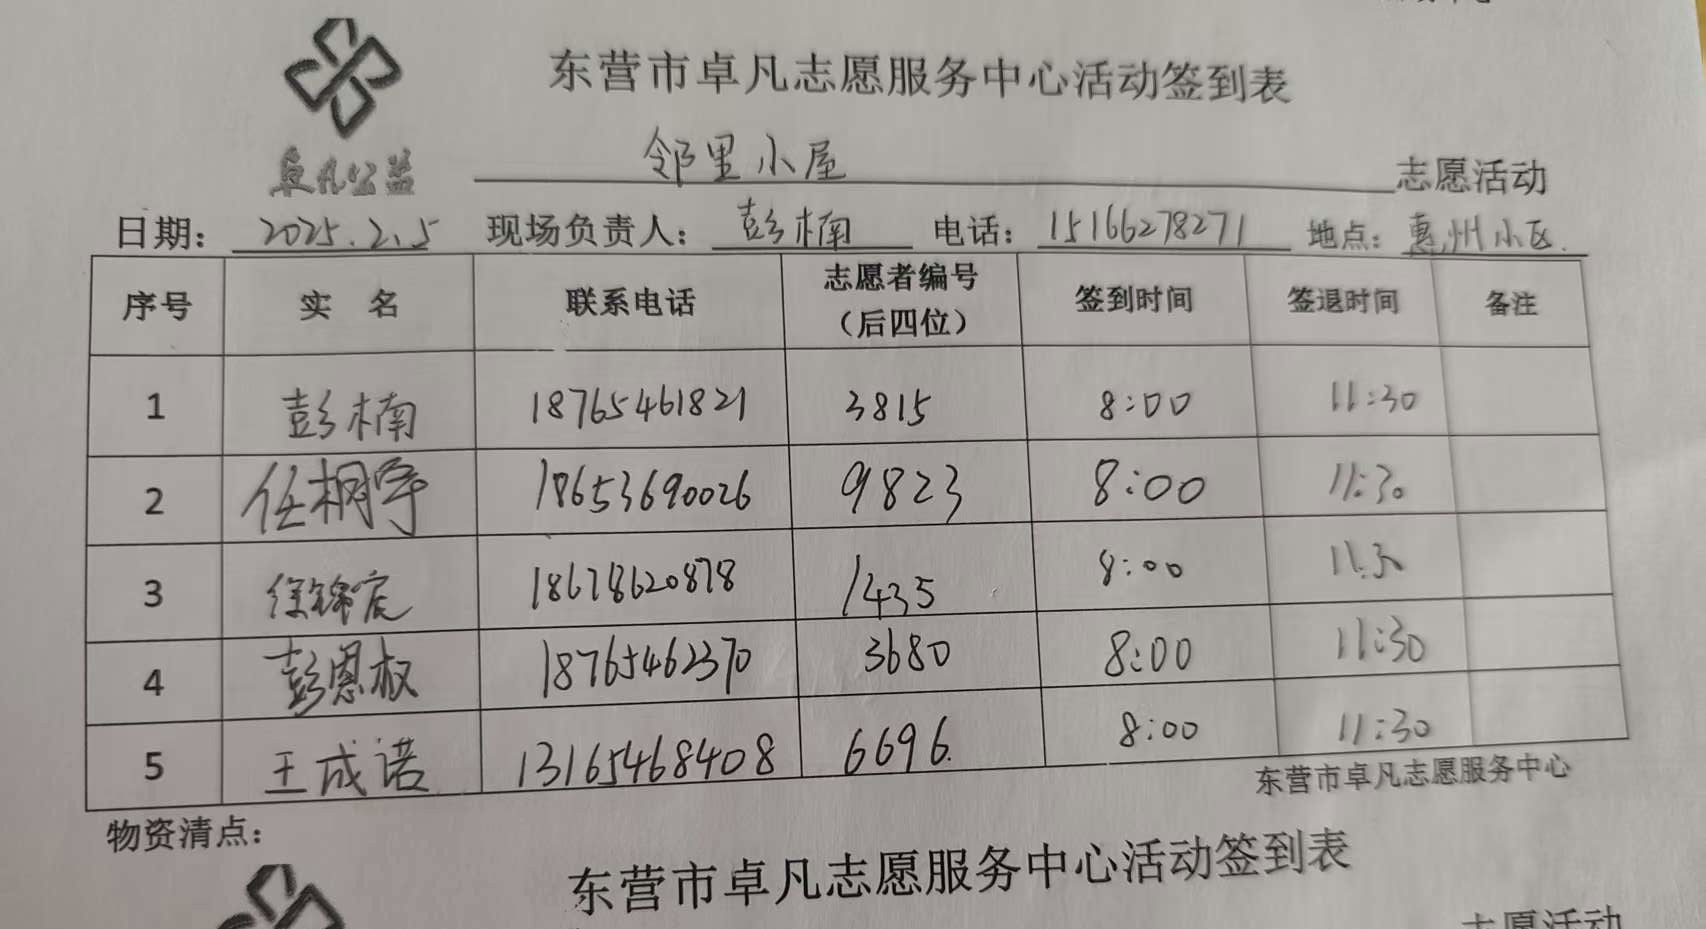 东营市卓凡志愿服务中心活动签到表
卓凡公益
邻里小屋 志愿活动
日期: 2025.2.5 现场负责人: 彭楠 电话: 15166278271 地点: 惠州小区
序号 实 名 联系电话 志愿者编号（后四位） 签到时间 签退时间 备注
1 彭楠 18765461821 3815 8:00 11:30
2 任桐宇 18653690026 9823 8:00 11:30
3 徐锦宸 18678620878 1435 8:00 11:30
4 彭恩权 18765462370 3680 8:00 11:30
5 王成诺 13165468408 6696. 8:00 11:30
东营市卓凡志愿服务中心
物资清点:
东营市卓凡志愿服务中心活动签到表
志愿活动